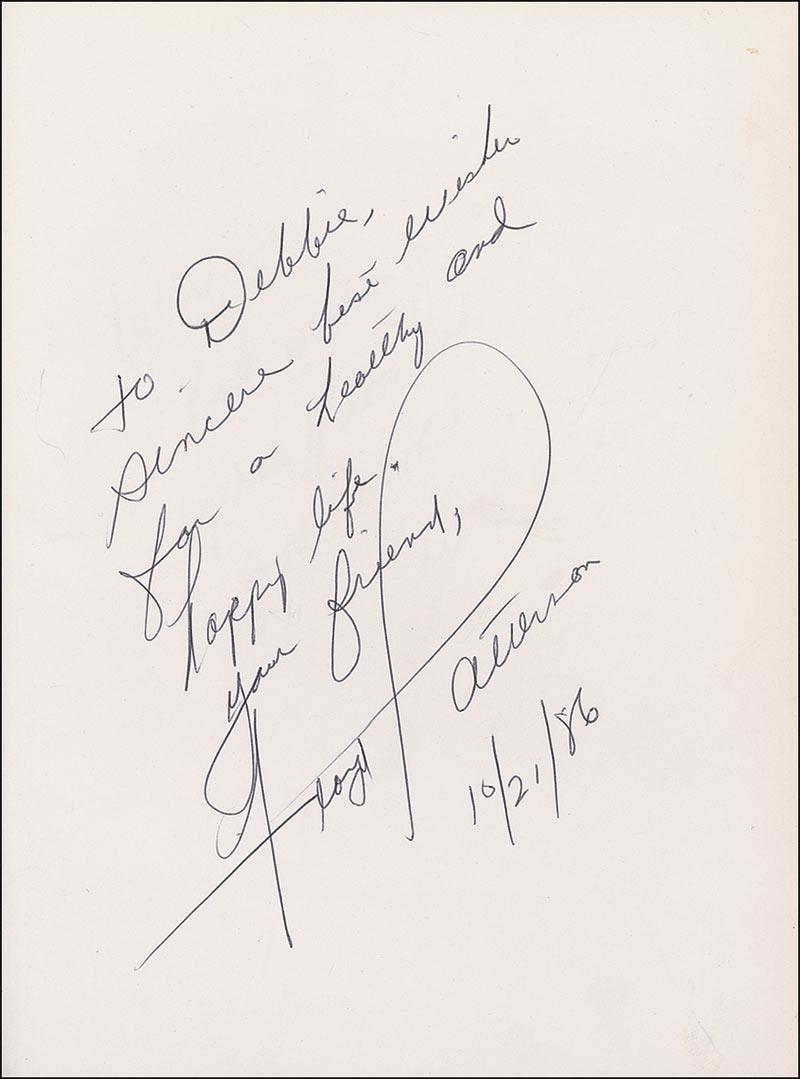 to Debbie,
sincere best wishes
for a healthy and
happy life.
your friend,
Floyd Patterson
10/21/86